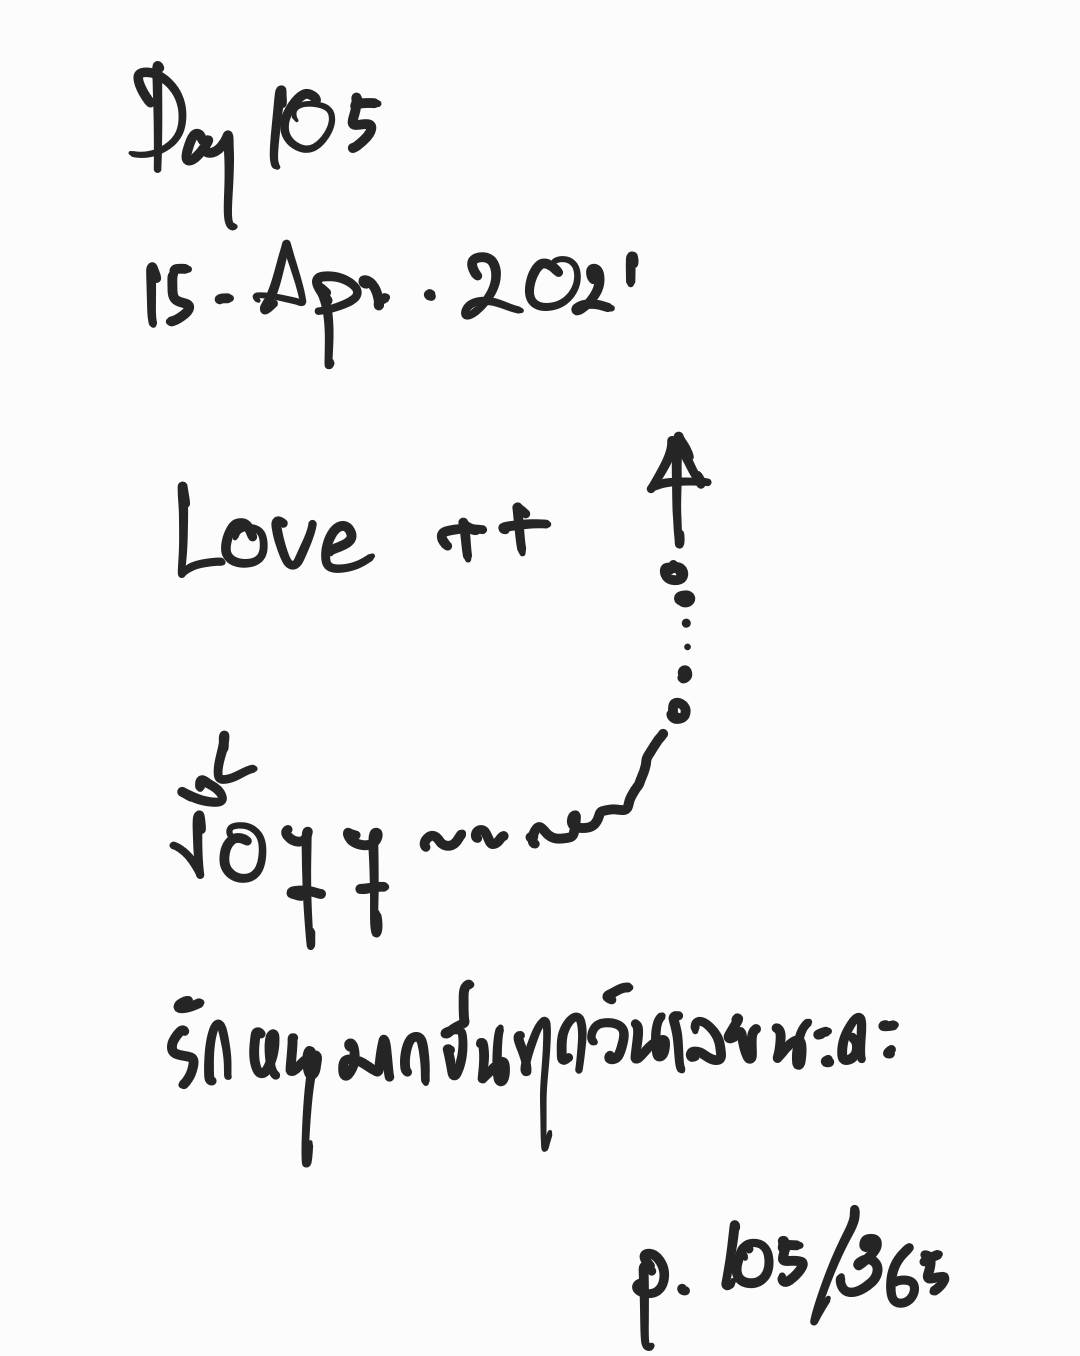 Day 105
15 - Apr . 2021
Love ++
รักหนูมากขึ้นทุกวันเลยนะคะ
p. 105/365